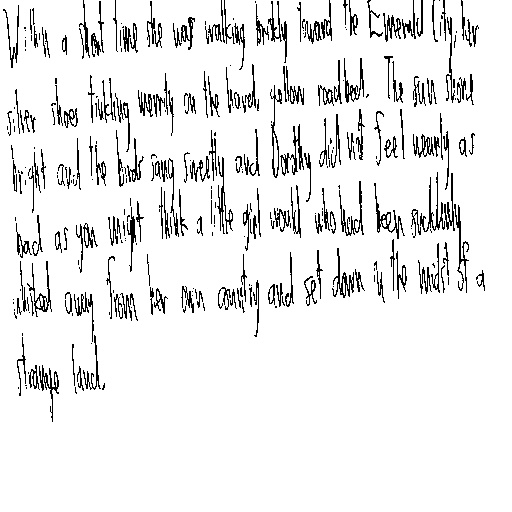 Within a short time she was walking briskly toward the Emerald City, her
silver shoes tinkling merrily on the hard, yellow roadbed. The sun shone
bright and the birds sang sweetly and Dorothy did not feel nearly as
bad as you might think a little girl would who had been suddenly
whisked away from her own country and set down in the midst of a
strange land.